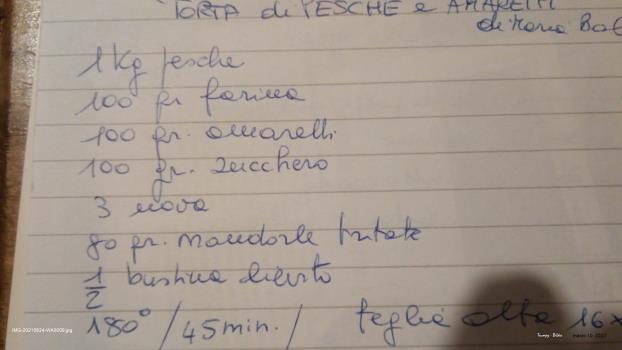 TORTA di PESCHE e AMARETTI
di Maria
1 Kg pesche
100 gr farina
100 gr. amaretti
100 gr. zucchero
3 uova
80 gr. mandorle tritate
1/2 bustina lievito
180° / 45 min. / teglia alta 16
IMG-20210824-WA0009.jpg